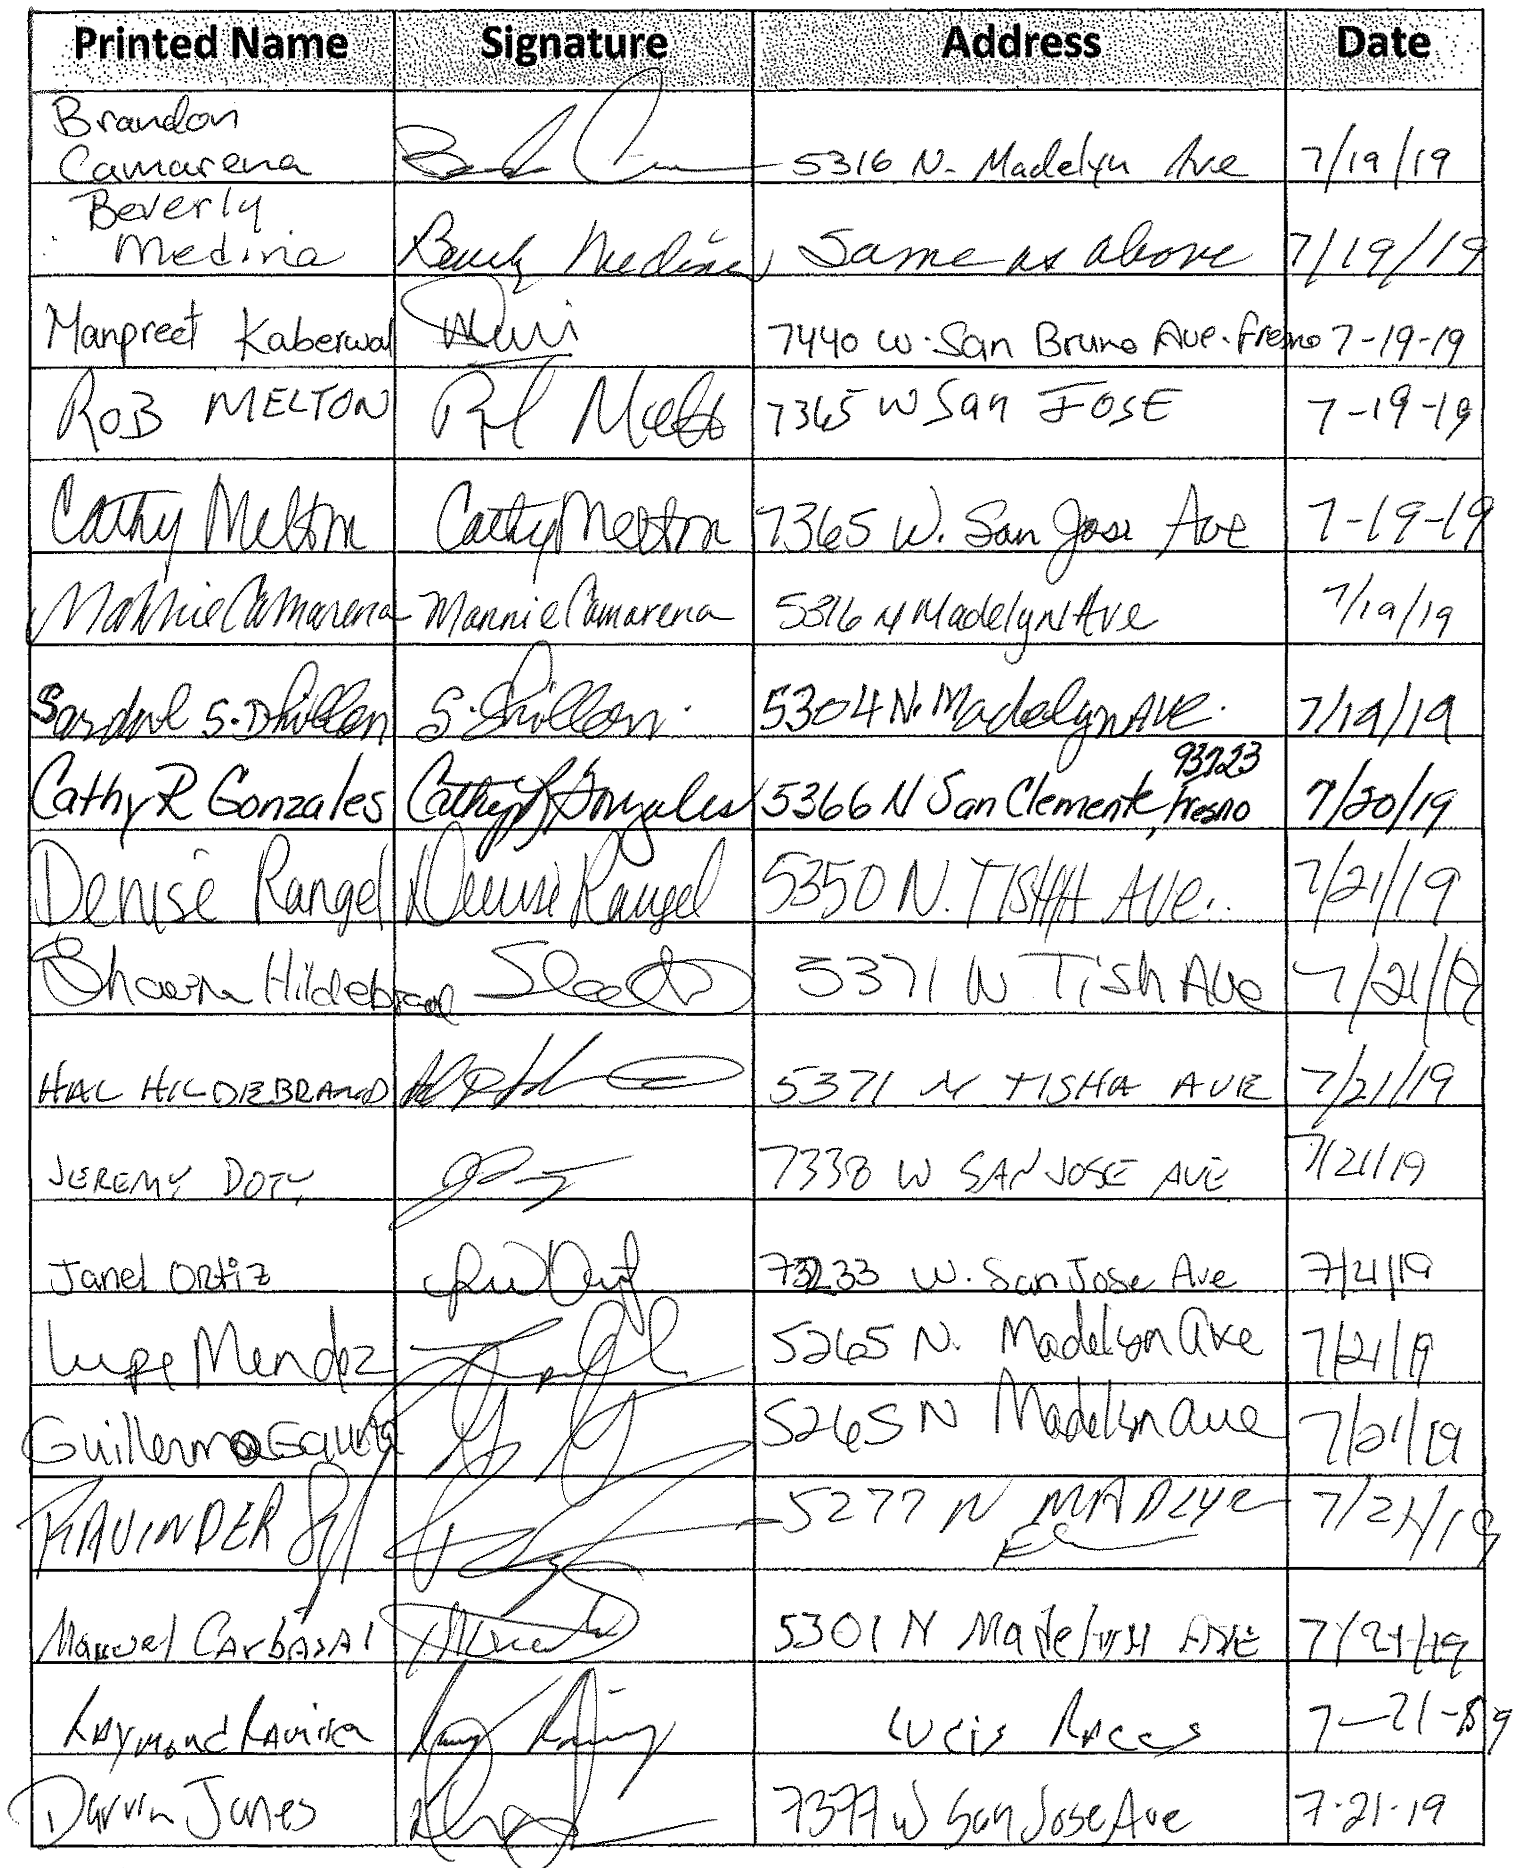 Printed Name Signature Address Date
Brandon
Camarena 5316 N. Madelyn Ave 7/19/19
Beverly
Medina Beverly Medina Same as above 7/19/19
Manpreet Kaberwal 7440 W. San Bruno Ave. Fresno 7-19-19
ROB MELTON 7365 W San JOSE 7-19-19
Cathy Melton Cathy Melton 7365 W. San Jose Ave 7-19-19
Mannie Camarena Mannie Camarena 5316 N Madelyn Ave 7/19/19
S. Dhillon S. Dhillon 5304 N. Madelyn AVE. 7/19/19
93723
Cathy R Gonzales Cathy R Gonzales 5366 N San Clemente, Fresno 7/20/19
Denise Rangel Denise Rangel 5350 N. TISHA AVE. 7/21/19
Hildebrand 5371 N Tish Ave 7/21/19
HAL HILDEBRAND 5371 N TISHA AVE 7/21/19
JEREMY DOTY 7338 W SAN JOSE AVE 7/21/19
Janel Ortiz W. San Jose Ave 7/21/19
Lupe Mendez 5265 N. Madelyn Ave 7/21/19
Guillermo 5265 N Madelyn ave 7/21/19
RAVINDER 5277 N 7/21/19
Manuel CArbAjAl 5301 N Madelyn AVE 7/21/19
RAymond 7-21-19
Darvin Jones W San Jose Ave 7-21-19